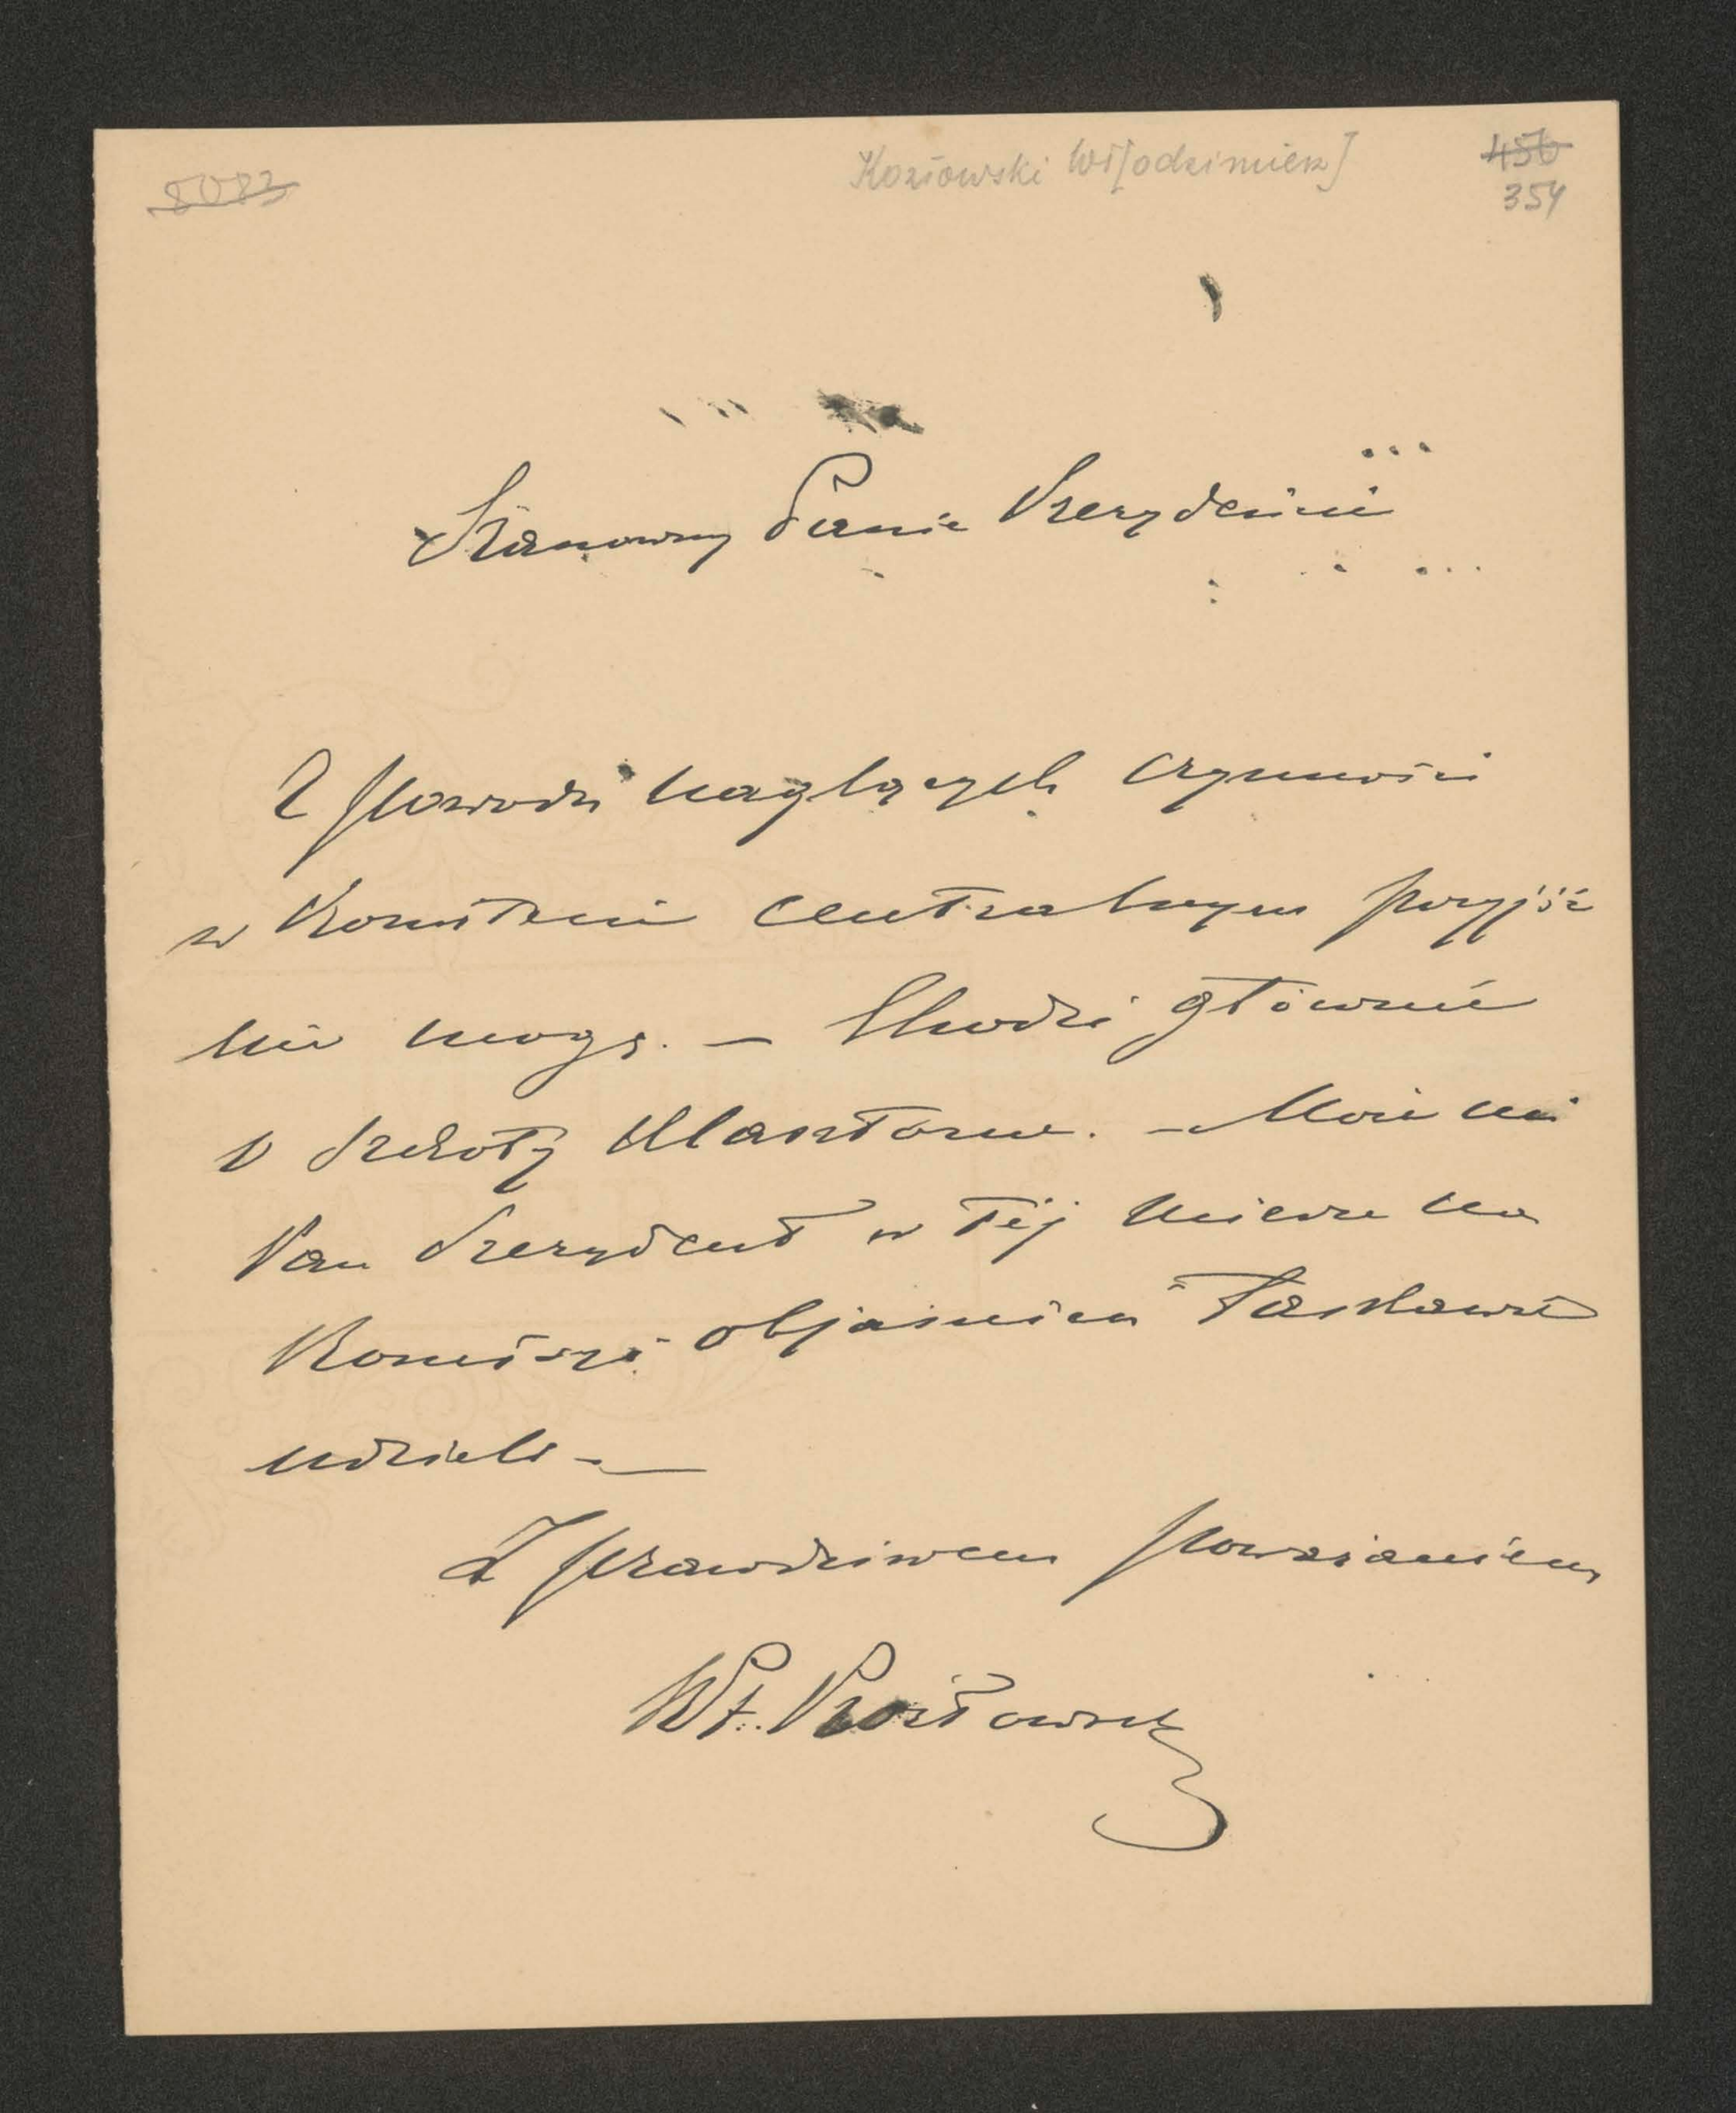 8083
Kozłowski Wł[odzimierz]
450
354
Szanowny Panie Prezydencie
Z powodu naglących czynności
w Komitecie centralnym przyjść
nie mogę. — Chodzi głównie
o szkoły klasztorne. — Może mi
Pan Prezydent w tej mierze na
Komisyi objaśnień łaskawie
udzieli —
Z prawdziwem poważaniem
Wł. Kozłowski